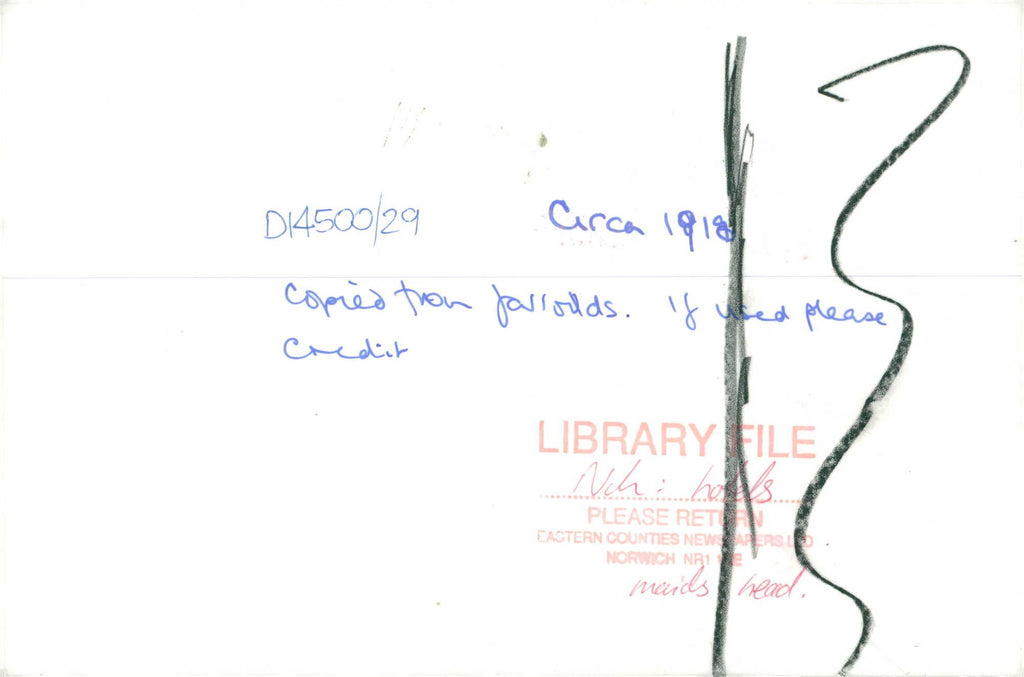 D14500/29 Circa 1918
Copied from Jarrolds. If used please
credit
LIBRARY FILE
Nch: hotels
PLEASE RETURN
EASTERN COUNTIES NEWSPAPERS LTD
NORWICH NR1
maids head.